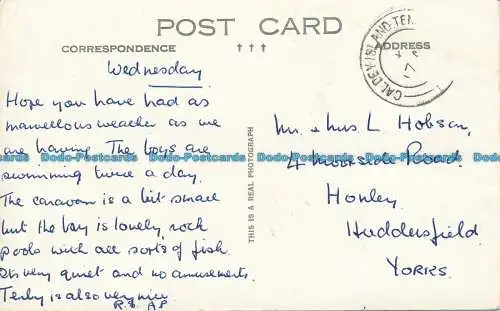 POST CARD
CORRESPONDENCE
ADDRESS
CALDEY·ISLAND·TE
Wednesday
Hope you have had as
marvellous weather as we
are having. The boys are
swimming twice a day.
The caravan is a bit small
but the bay is lovely, rock
pools with all sorts of fish.
Its very quiet and no amusements.
Tenby is also very nice
THIS IS A REAL PHOTOGRAPH
Mr. & Mrs L. Hobson,
4 Moorside Road.
Honley,
Huddersfield
YORKS.
Dodo-Postcards Dodo-Postcards Dodo-Postcards Dodo-Postcards Dodo-Postcards